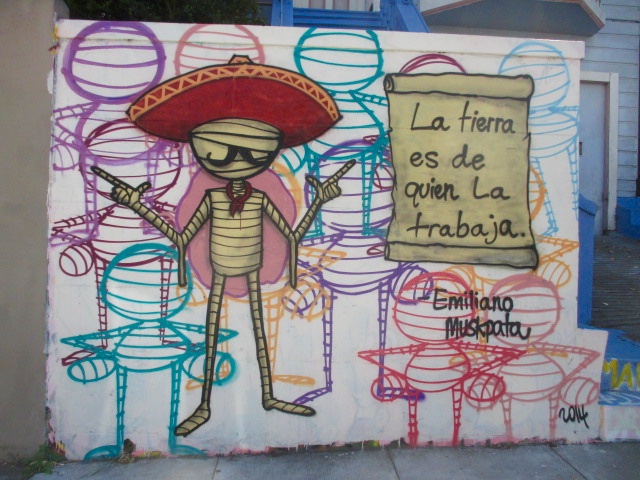 La tierra
es de
quien La
trabaja.
-Emiliano
Muskpata
2014